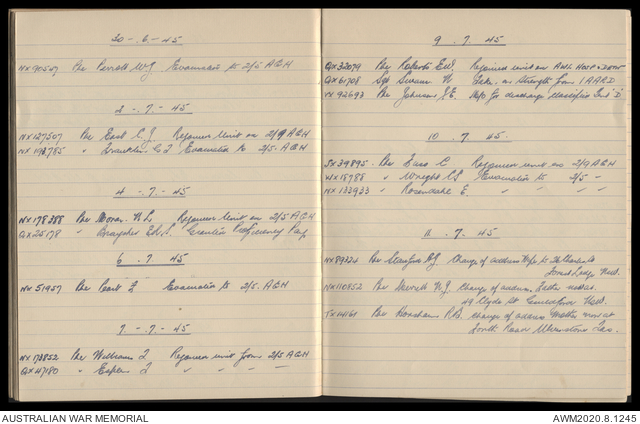 30 - 6 - 45
NX90547 Pte Perrott W J Evacuated to 2/5 AGH
2 . 7 . 45
NX127507 Pte East C. J. Rejoined Unit ex 2/9 AGH
NX192785 " Franklin C J Evacuated to 2/5. AGH
4 . 7 . 45
NX178388 Pte Moran N L Rejoined Unit ex 2/5 AGH
QX25178 " Proficiency Pay
6 . 7 . 45
NX51957 Pte Evacuated to 2/5. AGH
7 - 7 - 45
NX173852 Pte Williams J Rejoined unit from 2/5 AGH
QX47180 " " " " —
9 . 7 . 45
QX32079 Pte Roberts Rejoined unit ex
QX61708 Sgt Swann W Taken on Strength from 1 AARD
VX92693 Pte Johnson J E. for discharge "D"
10 . 7 . 45.
SX39895. Pte C Rejoined unit ex 2/9 AGH
WX18788 " Wright C S Evacuated to 2/5 -
NX133933 " Rosendahl E. " " " "
11 . 7 . 45
NX89324 Pte Change of address Wife to
Forest Lodge NSW.
NX110852 Pte Merrett N. J. Change of address. now at.
49 Clyde St Guildford NSW.
TX14161 Pte R. B. Change of address Mother now at
South Road Ulverstone Tas.
AUSTRALIAN WAR MEMORIAL
AWM2020.8.1245